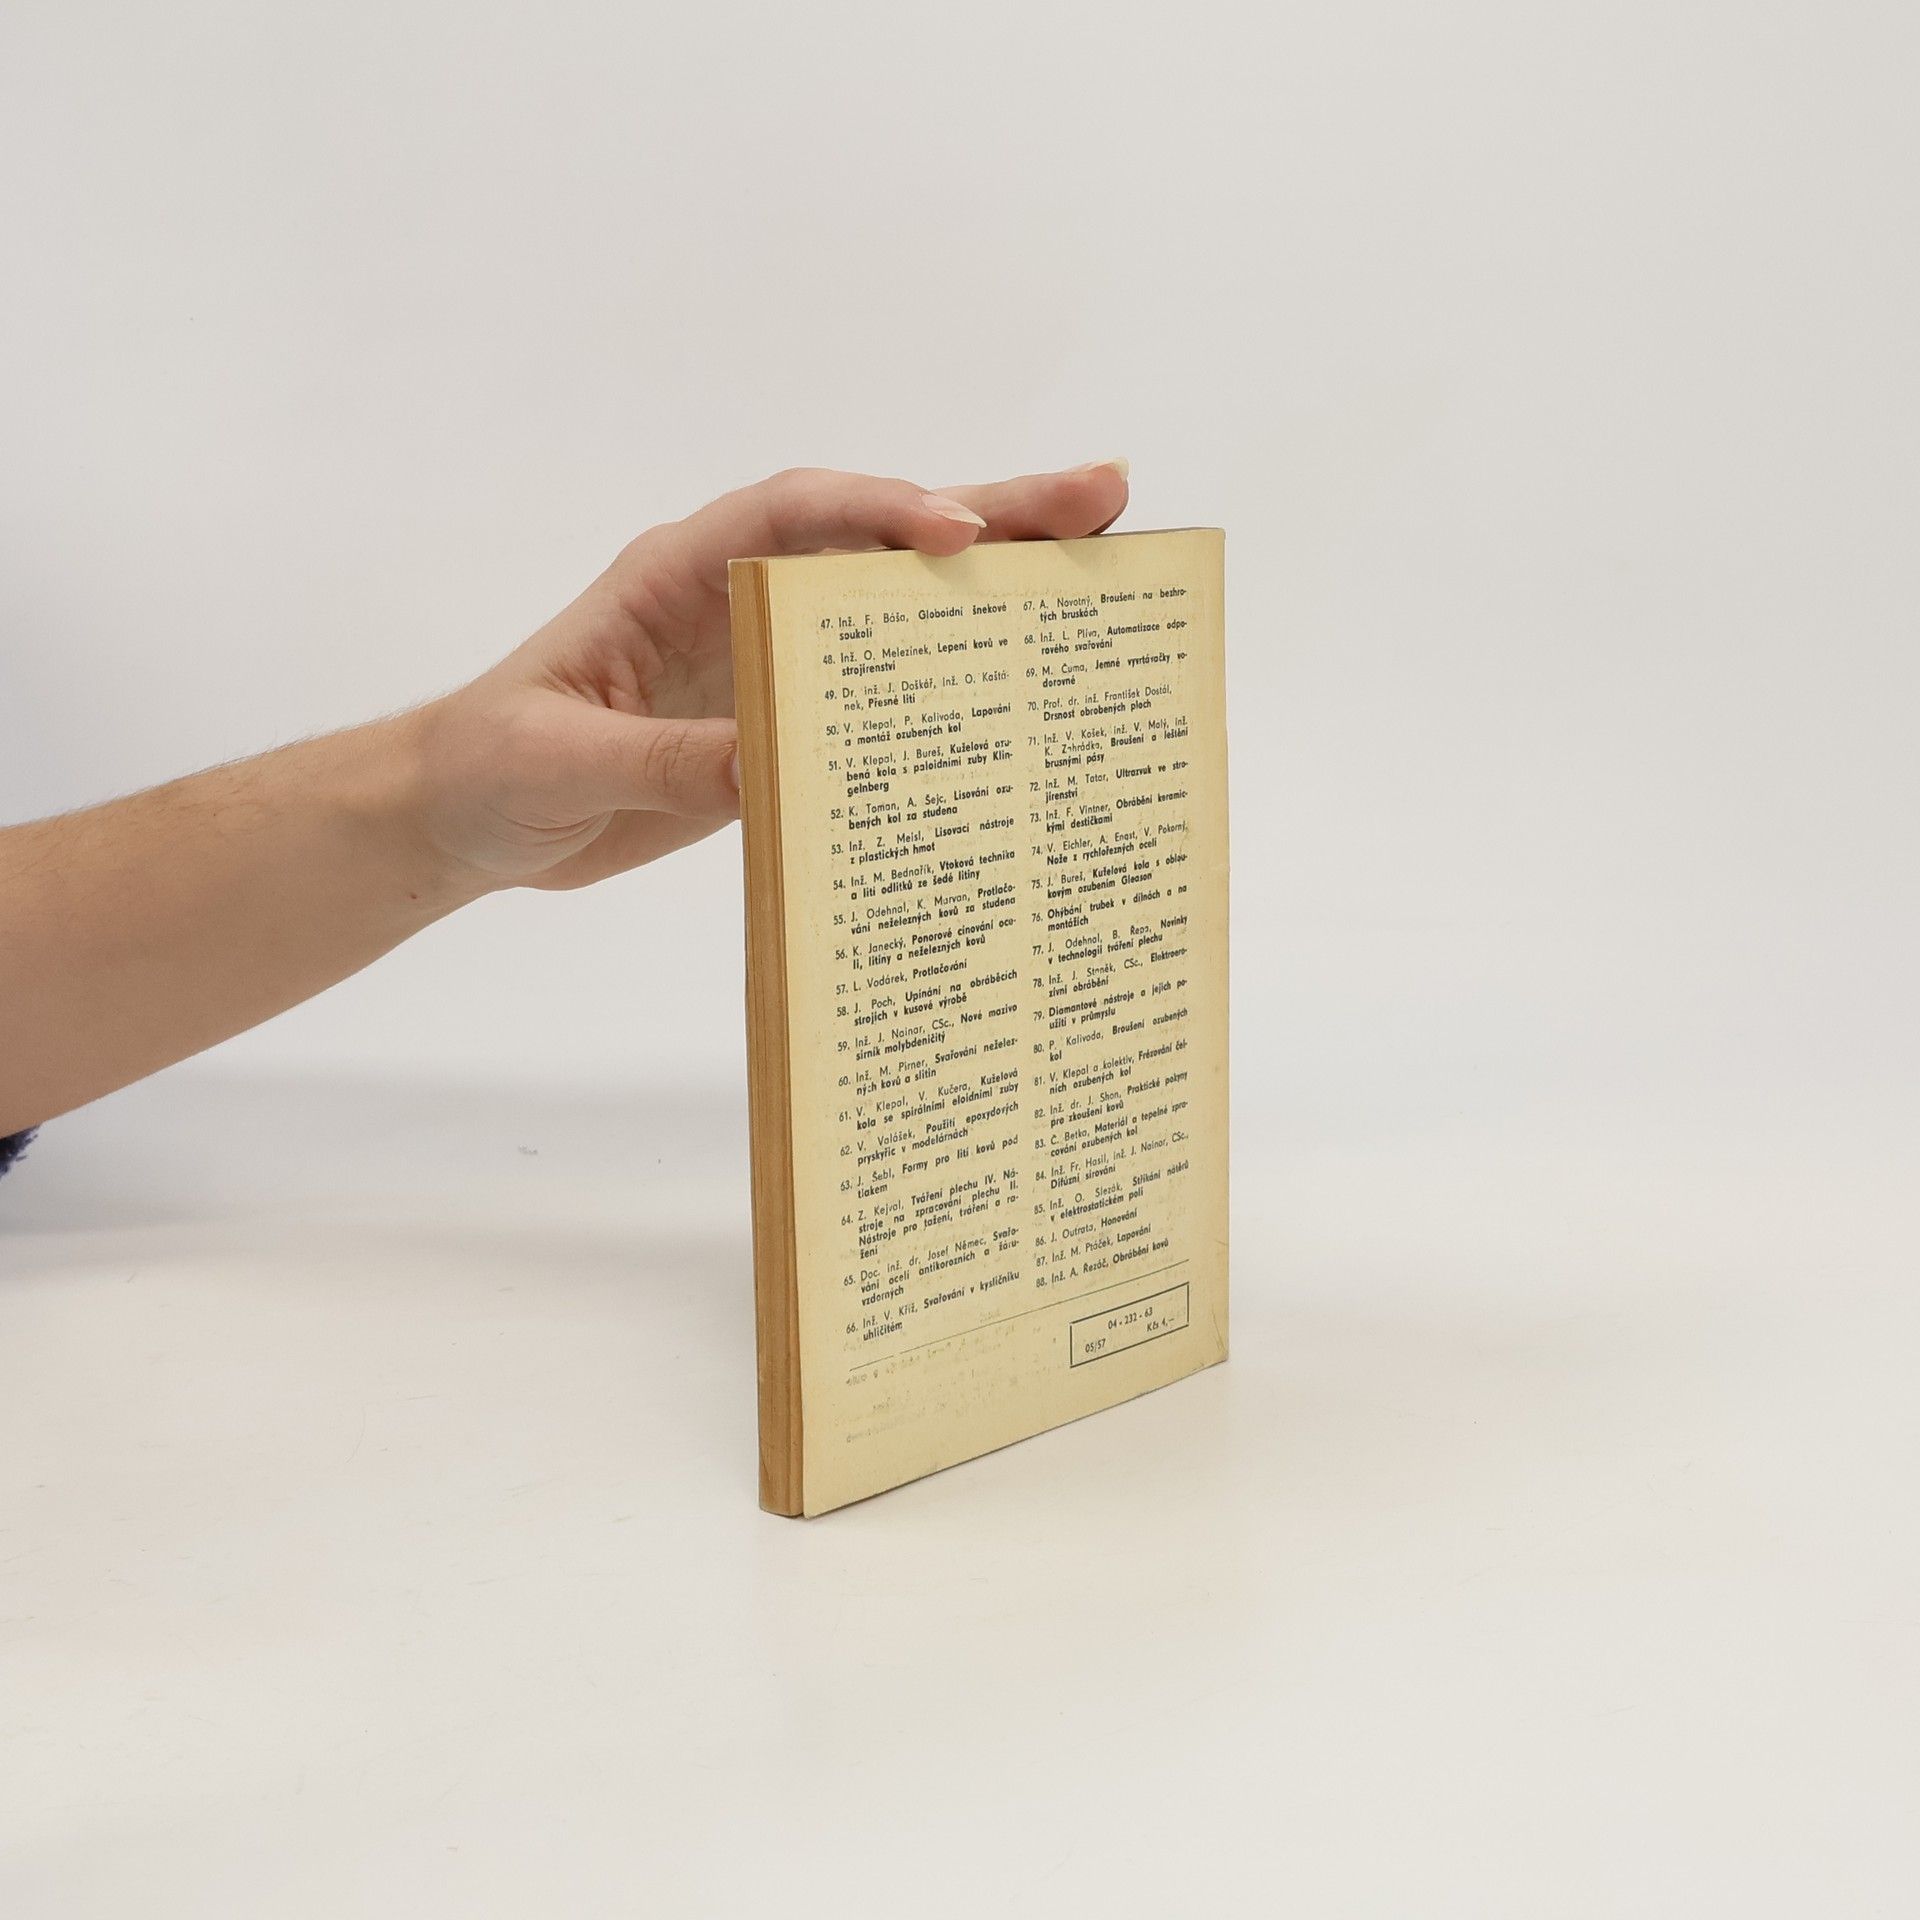 47. Inž. F. Báša, Globoidní šnekové
soukolí
48. Inž. O. Melezinek, Lepení kovů ve
strojírenství
49. Dr. inž. J. Doškář, Inž. O. Kaštá-
nek, Přesné lití
50. V. Klepal, P. Kalivoda, Lapování
a montáž ozubených kol
51. V. Klepal, J. Bureš, Kuželová ozu-
bená kola s paloidními zuby Klin-
gelnberg
52. K. Toman, A. Šejc, Lisování ozu-
bených kol za studena
53. Inž. Z. Meisl, Lisovací nástroje
z plastických hmot
54. Inž. M. Bednařík, Vtoková technika
a lití odlitků ze šedé litiny
55. J. Odehnal, K. Marvan, Protlačo-
vání neželezných kovů za studena
56. K. Janecký, Ponorové cínování oce-
li, litiny a neželezných kovů
57. L. Vodárek, Protlačování
58. J. Poch, Upínání na obráběcích
strojích v kusové výrobě
59. Inž. J. Nainar, CSc., Nové mazivo
sirník molybdeničitý
60. Inž. M. Pirner, Svařování neželez-
ných kovů a slitin
61. V. Klepal, V. Kučera, Kuželová
kola se spirálními eloidními zuby
62. V. Valášek, Použití epoxydových
pryskyřic v modelárnách
63. J. Šebl, Formy pro lití kovů pod
tlakem
64. Z. Kejval, Tváření plechu IV. Ná-
stroje na zpracování plechu II.
Nástroje pro tažení, tváření a ra-
žení
65. Doc. inž. dr. Josef Němec, Svařo-
vání ocelí antikorozních a žáru-
vzdorných
66. Inž. V. Kříž, Svařování v kysličníku
uhličitém
67. A. Novotný, Broušení na bezhro-
tých bruskách
68. Inž. L. Plíva, Automatizace odpo-
rového svařování
69. M. Čuma, Jemné vyvrtávačky vo-
dorovné
70. Prof. dr. inž. František Dostál,
Drsnost obrobených ploch
71. Inž. V. Košek, inž. V. Malý, inž.
K. Zahrádka, Broušení a leštění
brusnými pásy
72. Inž. M. Tatar, Ultrazvuk ve stro-
jírenství
73. Inž. F. Vintner, Obrábění keramic-
kými destičkami
74. V. Eichler, A. Engst, V. Pokorný,
Nože z rychlořezných ocelí
75. J. Bureš, Kuželová kola s oblou-
kovým ozubením Gleason
76. Ohýbání trubek v dílnách a na
montážích
77. J. Odehnal, B. Řepa, Novinky
v technologii tváření plechu
78. Inž. J. Staněk, CSc., Elektroero-
zívní obrábění
79. Diamantové nástroje a jejich po-
užití v průmyslu
80. P. Kalivoda, Broušení ozubených
kol
81. V. Klepal a kolektiv, Frézování čel-
ních ozubených kol
82. Inž. dr. J. Shon, Praktické pokyny
pro zkoušení kovů
83. Č. Betka, Materiál a tepelné zpra-
cování ozubených kol
84. Inž. Fr. Hasil, inž. J. Nainar, CSc.,
Difúzní sirování
85. Inž. O. Slezák, Stříkání nátěrů
v elektrostatickém poli
86. J. Outrata, Honování
87. Inž. M. Ptáček, Lapování
88. Inž. A. Řezáč, Obrábění kovů
04 - 232 - 63
05/57 Kčs 4,—